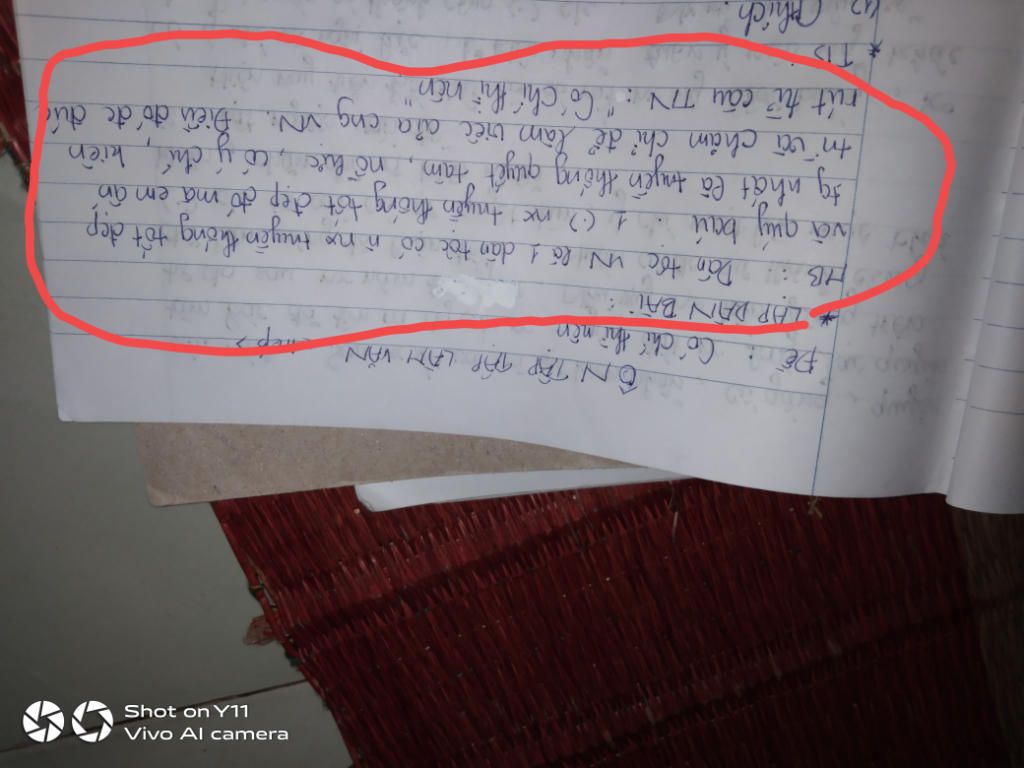 ÔN TẬP TẬP LÀM VĂN
Đề: Có chí thì nên
* LẬP DÀN BÀI:
MB: Dân tộc VN là 1 dân tộc có n~ nx truyền thống tốt đẹp
và quý báu. 1 (.) nx truyền thống tốt đẹp đó mà em ấn
tg nhất là truyền thống quyết tâm, nỗ lực, có ý chí, kiên
trì và chăm chỉ để làm việc của cng VN. Điều đó đc đúc
rút từ câu TN: "Có chí thì nên"
* TB:
(1) Gthích.
Shot on Y11
Vivo AI camera